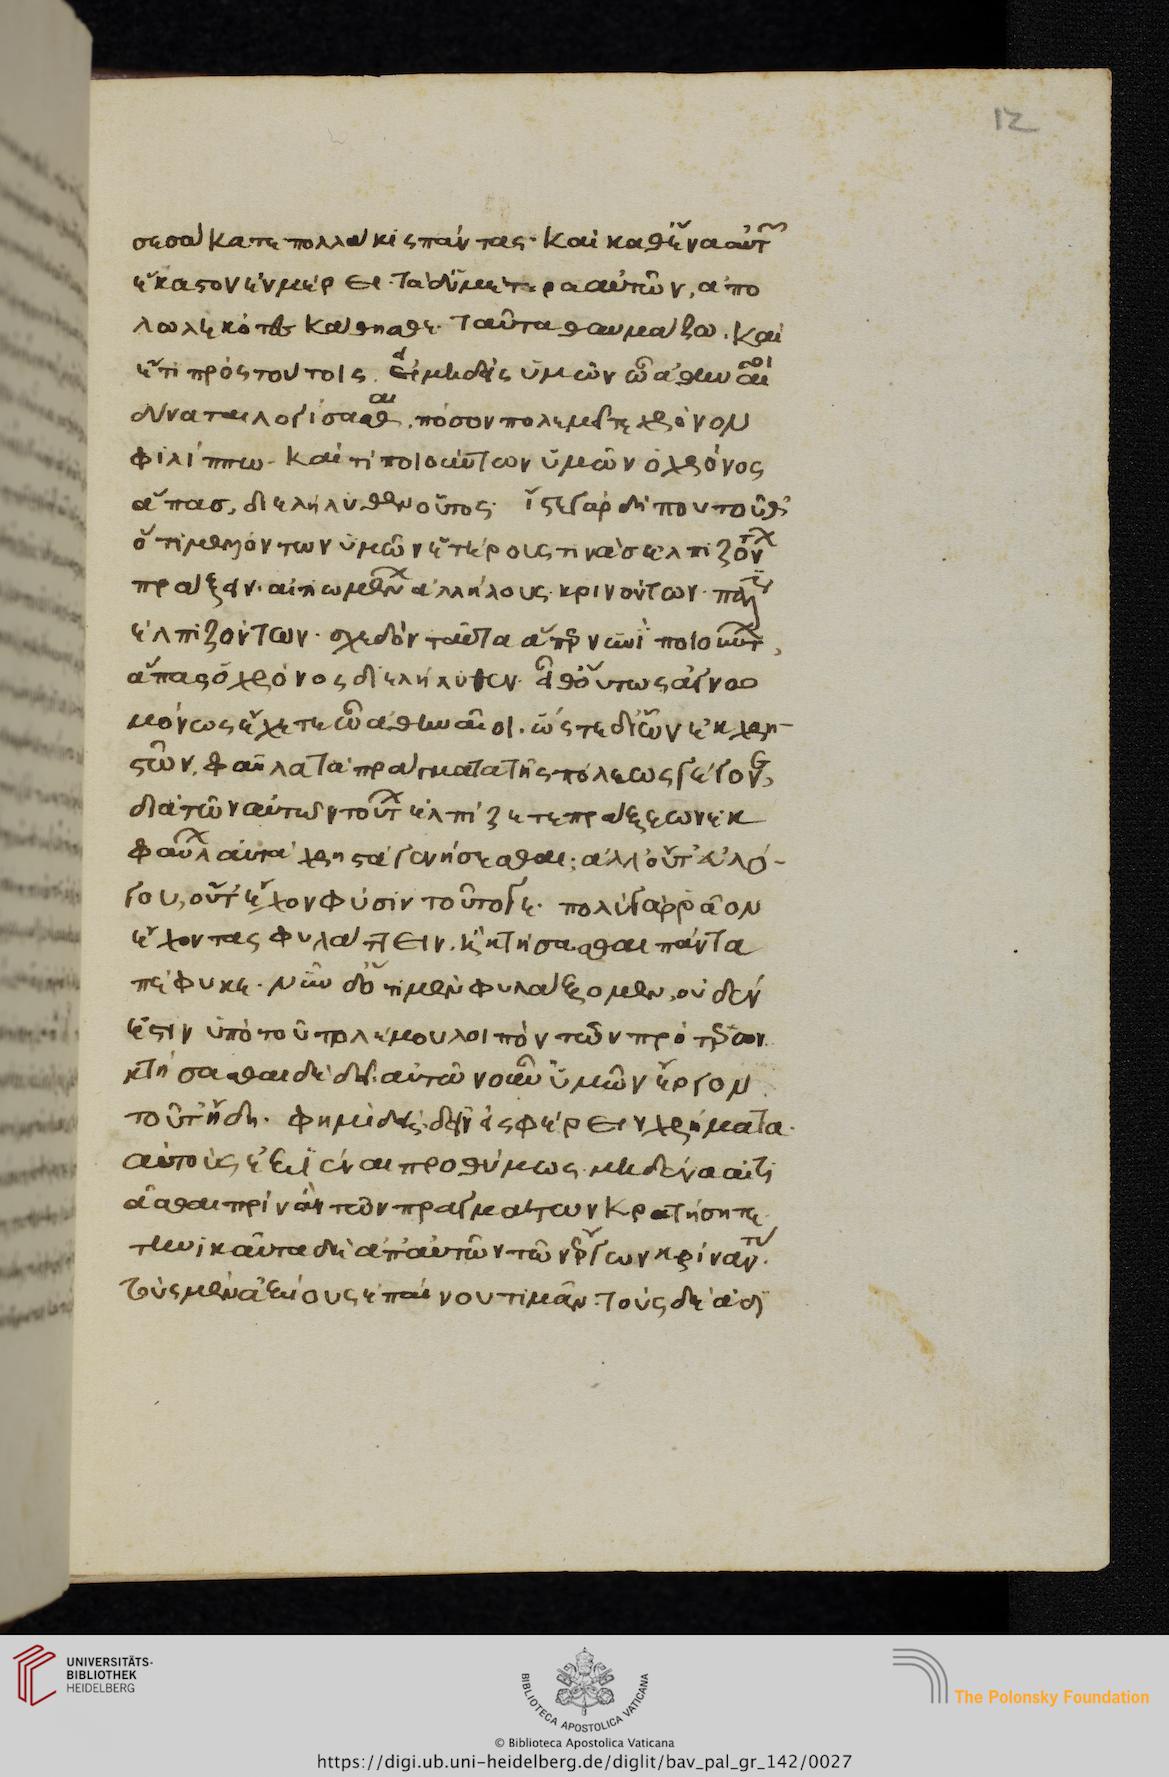 12
σεσώκατε πολλάκις πάντας· καὶ καθ' ἕνα αὐτῶν
ἕκαστον ἐν μέρει· τὰ δ' ὑμέτερα αὐτῶν, ἀπο
λωλεκότες κάθησθε· ταῦτα θαυμάζω· καὶ
ἔτι πρὸς τούτοις. εἰ μηδεὶς ὑμῶν ὦ ἄ. ἀθηναῖοι
δύναται λογίσασθαι, πόσον πολεμεῖτε χρόνον
φιλίππω· καὶ τί ποιούντων ὑμῶν ὁ χρόνος
ἅπας, διελήλυθεν οὗτος· ἴστε γὰρ δήπου τοῦθ'
ὅτι μελλόντων ὑμῶν ἑτέρους τινὰς ἐλπιζόντων
πράξειν· αἰτιωμένων ἀλλήλους· κρινόντων· πάλιν
ἐλπιζόντων· σχεδὸν ταῦτα ἅπερ νυνὶ ποιούντων,
ἅπας ὁ χρόνος διελήλυθεν· εἶθ' οὕτως ἀγνω
μόνως ἔχετε ὦ ἀθηναῖοι· ὥστε δι' ὧν ἐκ χρη-
στῶν, φαῦλα τὰ πράγματα τῆς πόλεως γέγονε,
διὰ τῶν αὐτῶν τούτων ἐλπίζετε πράξεων ἐκ
φαύλων αὐτὰ χρηστὰ γενήσεσθαι; ἀλλ' οὔτ' εὔλο-
γου, οὔτ' ἔχον φύσιν τοῦτό γε· πολὺ γὰρ ῥᾶον
ἔχοντας φυλάττειν· ἢ κτήσασθαι πάντα
πέφυκε· νῦν δ' ὅτι μὲν φυλάξομεν, οὐδέν
ἐστιν ὑπὸ τοῦ πολέμου λοιπὸν τῶν πρότερον·
κτήσασθαι δὲ δεῖ· αὐτῶν οὖν ὑμῶν ἔργον
τοῦτ' ἤδη· φημὶ δεῖν εἰσφέρειν χρήματα·
αὐτοὺς ἐξιέναι προθύμως· μηδένα αἰτι
ᾶσθαι πρὶν ἂν τῶν πραγμάτων κρατήσητε·
τηνικαῦτα δὲ ἀπ' αὐτῶν τῶν ἔργων κρίναντας·
τοὺς μὲν ἀξίους ἐπαίνου τιμᾶν· τοὺς δὲ ἀδι
UNIVERSITÄTS-
BIBLIOTHEK
HEIDELBERG
BIBLIOTECA APOSTOLICA VATICANA
The Polonsky Foundation
© Biblioteca Apostolica Vaticana
https://digi.ub.uni-heidelberg.de/diglit/bav_pal_gr_142/0027